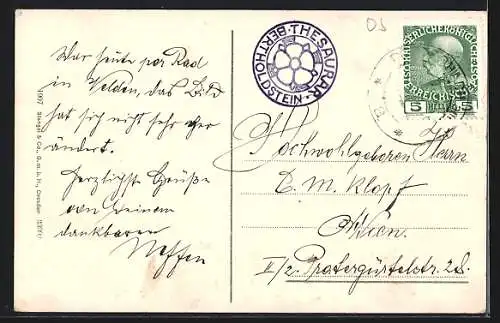 War heute per Rad
in Velden, das Bild
hat sich nicht sehr ver
ändert.
Herzlichste Grüße
von Deinem
dankbaren
Neffen
THESAURAR · BERTHOLDSTEIN ·
KAISERLICHE KÖNIGLICHE
ÖSTERREICHISCHE POST
5 HELLER 5
Hochwohlgeboren Herrn
E. M. Klopf
Wien.
II/2 Pratergürtelstr. 28.
Stengel & Co., G. m. b. H., Dresden